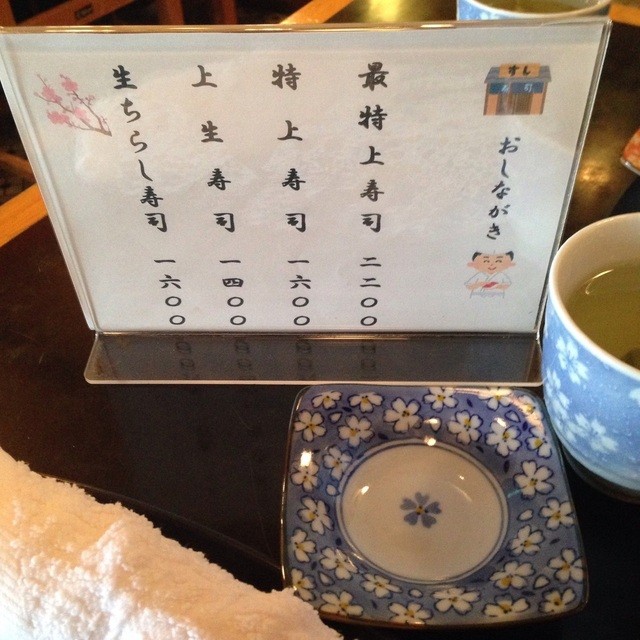 すし
寿司
おしながき
最特上寿司 二二〇〇
特上寿司 一六〇〇
上生寿司 一四〇〇
生ちらし寿司 一六〇〇